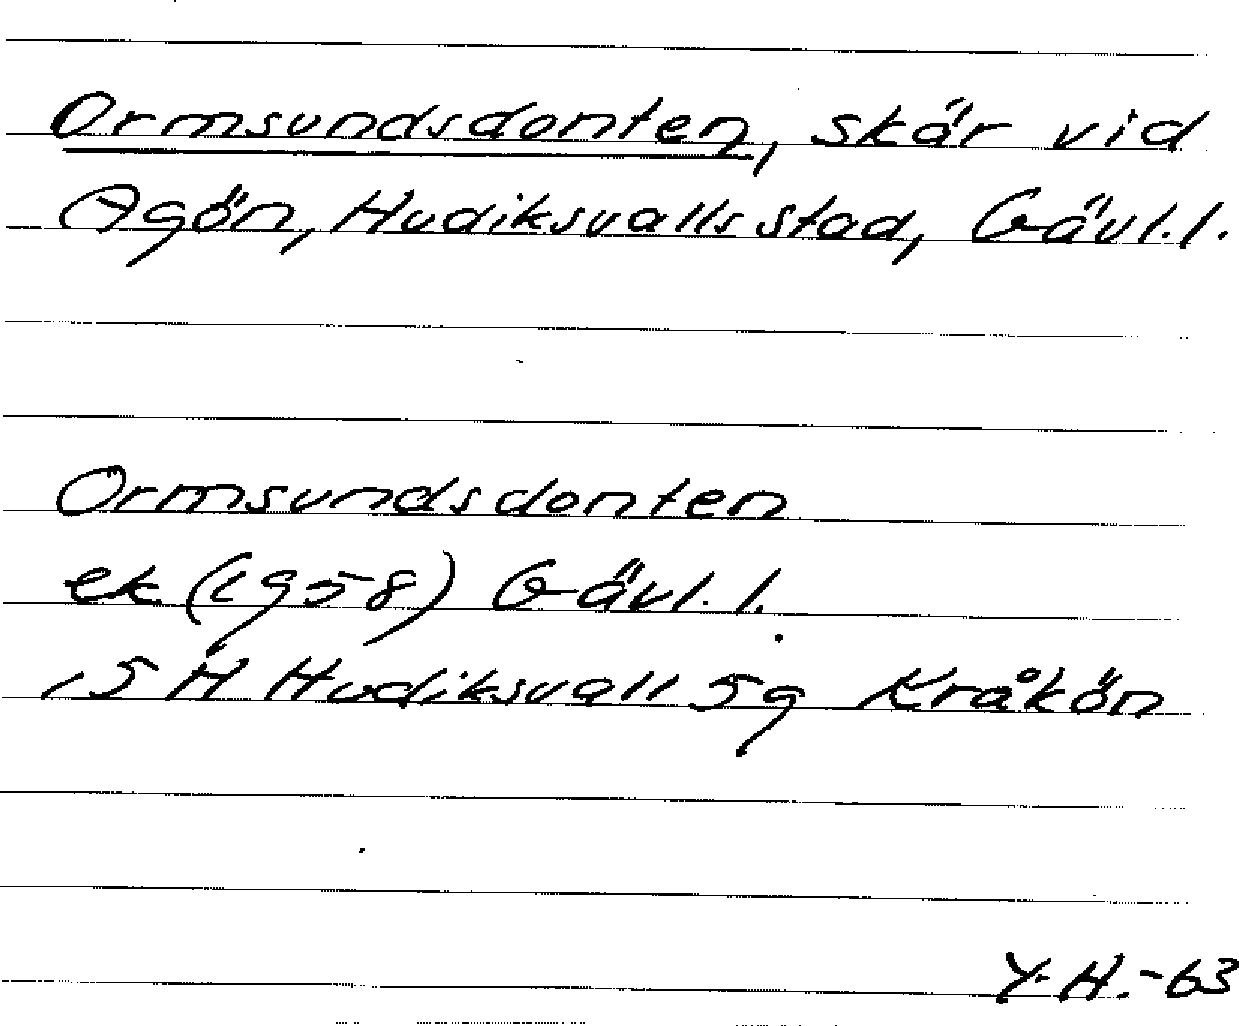 Ormsundsdonten, skär vid
Agön, Hudiksvalls stad, Gävl.l.
Ormsundsdonten
ek (1958) Gävl.l.
15 H Hudiksvall 5g Kråkön
Y.H.-63